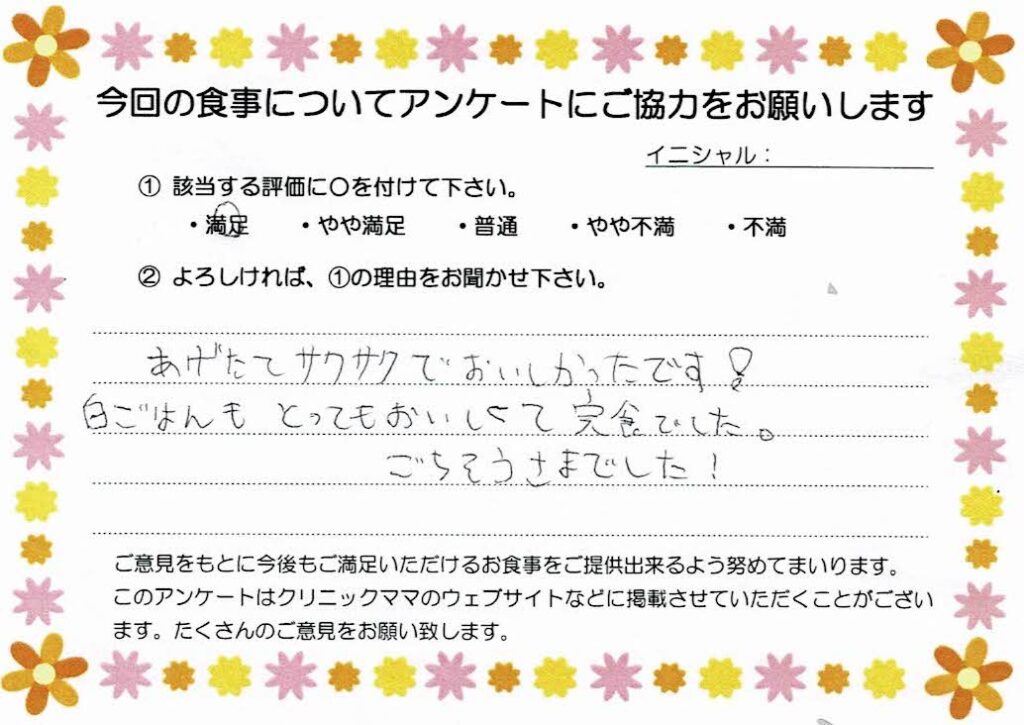 今回の食事についてアンケートにご協力をお願いします
イニシャル：
① 該当する評価に〇を付けて下さい。
・満足 ・やや満足 ・普通 ・やや不満 ・不満
② よろしければ、①の理由をお聞かせ下さい。
あげたてサクサクでおいしかったです！
白ごはんも とってもおいしくて 完食でした。
ごちそうさまでした！
ご意見をもとに今後もご満足いただけるお食事をご提供出来るよう努めてまいります。
このアンケートはクリニックママのウェブサイトなどに掲載させていただくことがござい
ます。たくさんのご意見をお願い致します。